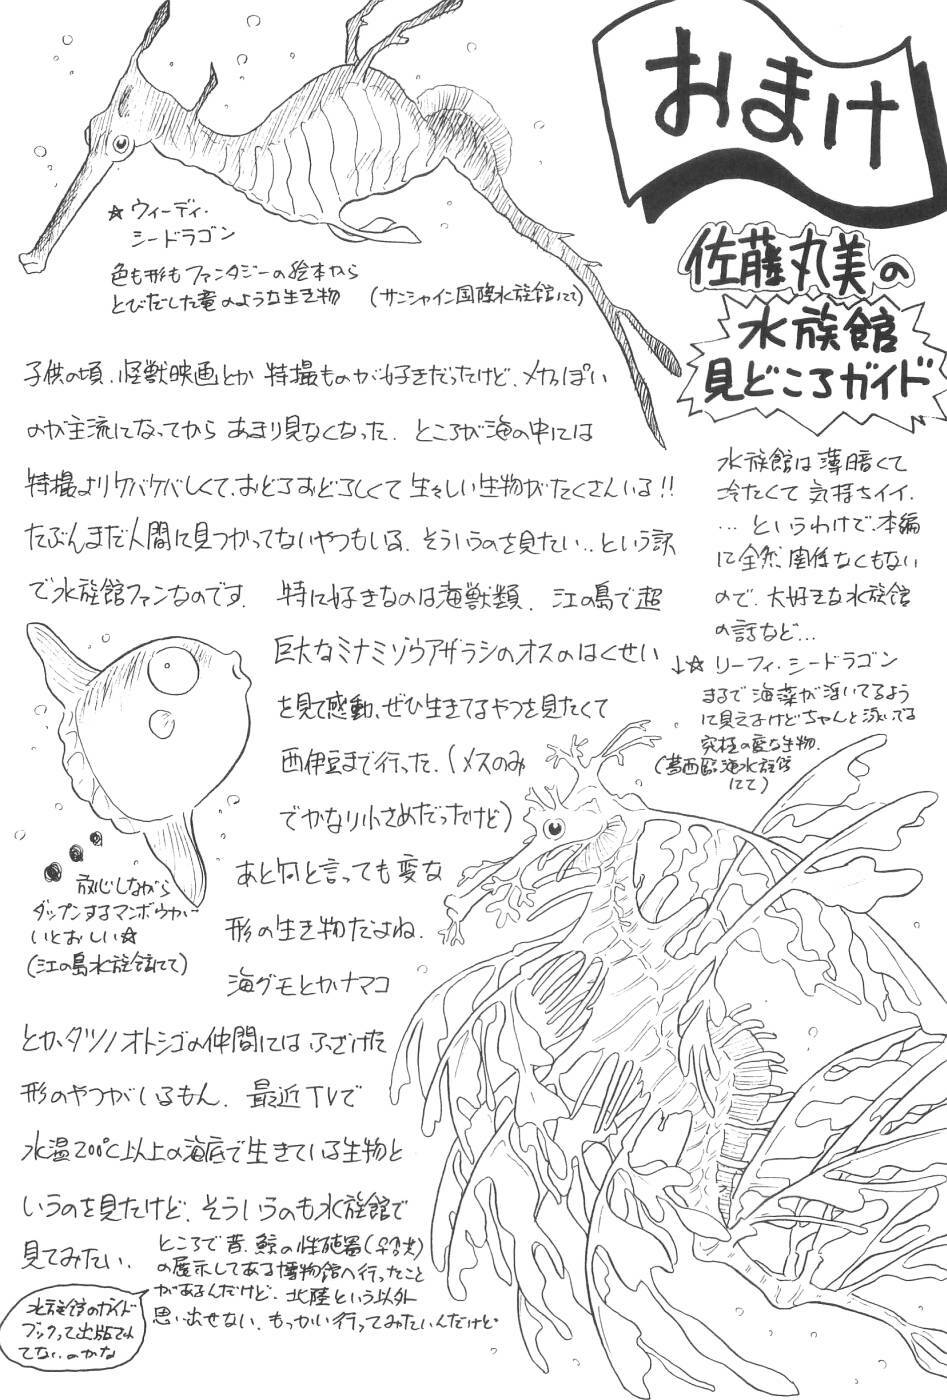 おまけ
佐藤丸美の
水族館
見どころガイド
水族館は薄暗くて
冷たくて気持ちイイ.
…というわけで、本編
に全然関係なくもない
ので、大好きな水族館
の話など…
☆ウィーディ・
シードラゴン
色も形もファンタジーの絵本から
とびだした竜のような生き物 (サンシャイン国際水族館にて)
子供の頃、怪獣映画とか特撮ものが好きだったけど、メカっぽい
のが主流になってからあまり見なくなった. ところが海の中には
特撮よりケバケバしくて、おどろおどろしくて生々しい生物がたくさんいる!!
たぶんまだ人間に見つかってないやつもいる. そういうのを見たい..という訳
で水族館ファンなのです. 特に好きなのは海獣類. 江の島で超
巨大なミナミゾウアザラシのオスのはくせい
を見て感動、ぜひ生きてるやつを見たくて
西伊豆まで行った. (メスのみ
でかなり小さめだったけど)
あと何と言っても変な
形の生き物だよね.
海グモとかナマコ
とか、タツノオトシゴの仲間にはふざけた
形のやつがいるもん. 最近TVで
水温200℃以上の海底で生きている生物と
いうのを見たけど、そういうのも水族館で
見てみたい.
↓☆リーフィ・シードラゴン
まるで海藻が浮いてるよう
に見えるけどちゃんと泳いでる
究極の変な生物.
(葛西臨海水族館
にて)
放心しながら
ダップンするマンボウが…
いとおしい☆
(江の島水族館にて)
ところで昔、鯨の性器(♀♂大)
の展示してある博物館へ行ったこと
があるんだけど、北陸という以外
思い出せない. もっかい行ってみたいんだけど…
水族館のガイド
ブックって出版され
てないのかな